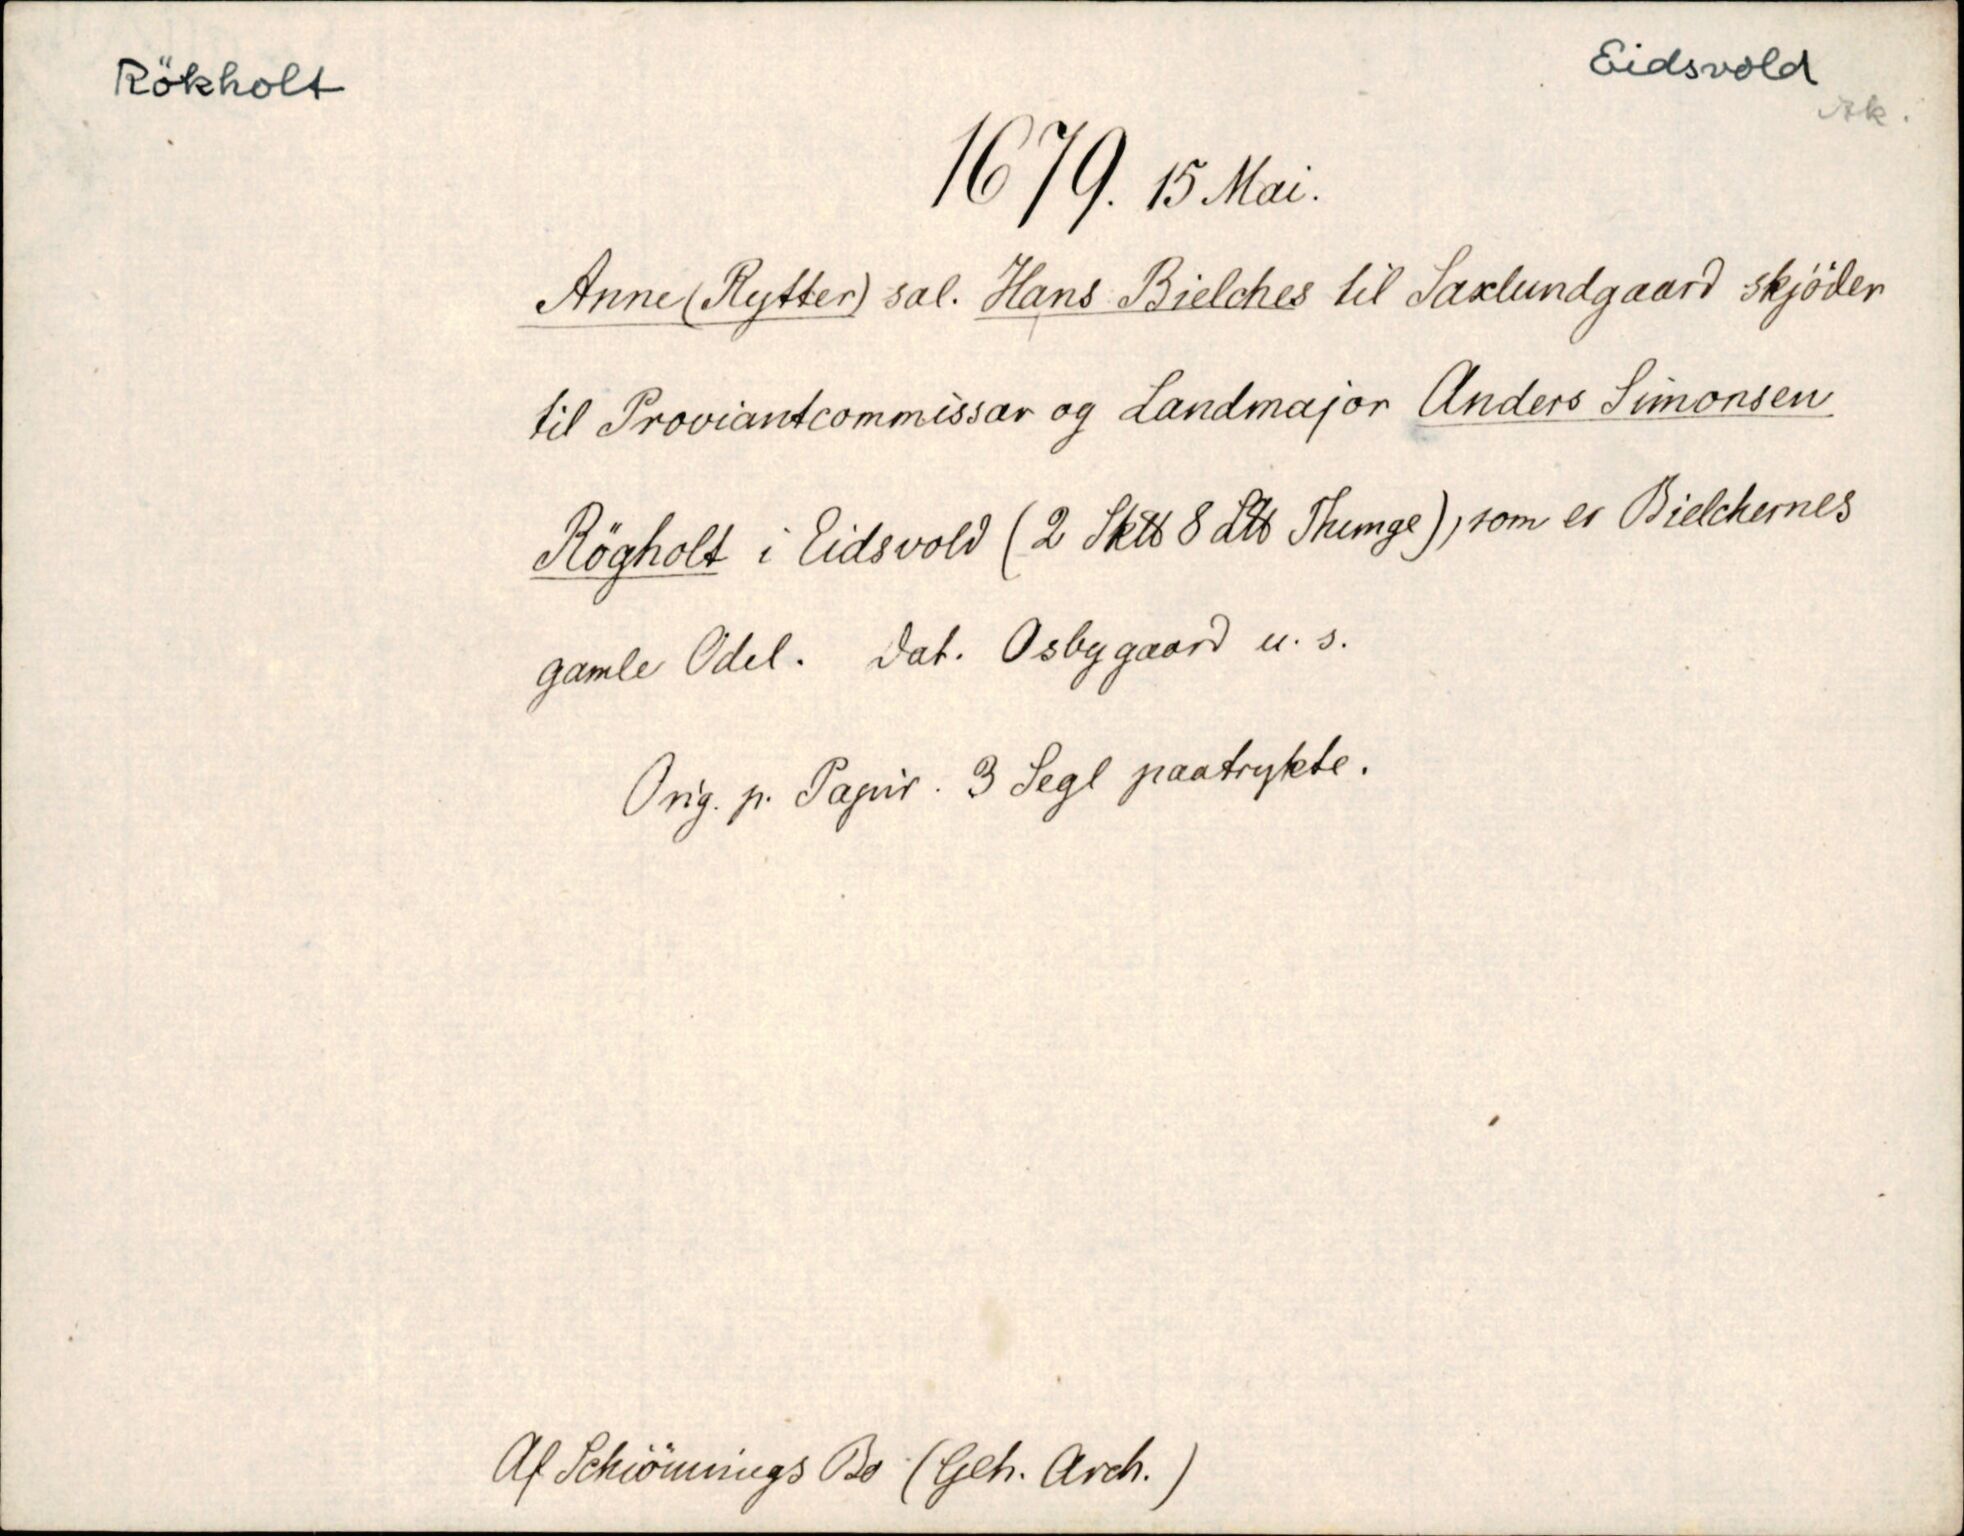 Rökholt
Eidsvold
Ak.
1679. 15 Mai.
Anne (Rytter) sal. Hans Bielches til Saxlundgaard skjöder
til Proviantcommissar og Landmajor Anders Simonsen
Rögholt i Eidsvold (2 Sk℔ 8 L℔ Thunge), som er Bielchernes
gamle Odel. Dat. Osbygaard u. s.
Orig. p. Papir. 3 Segl paatrykte.
Af Schiönnings Bo (Geh. Arch.)